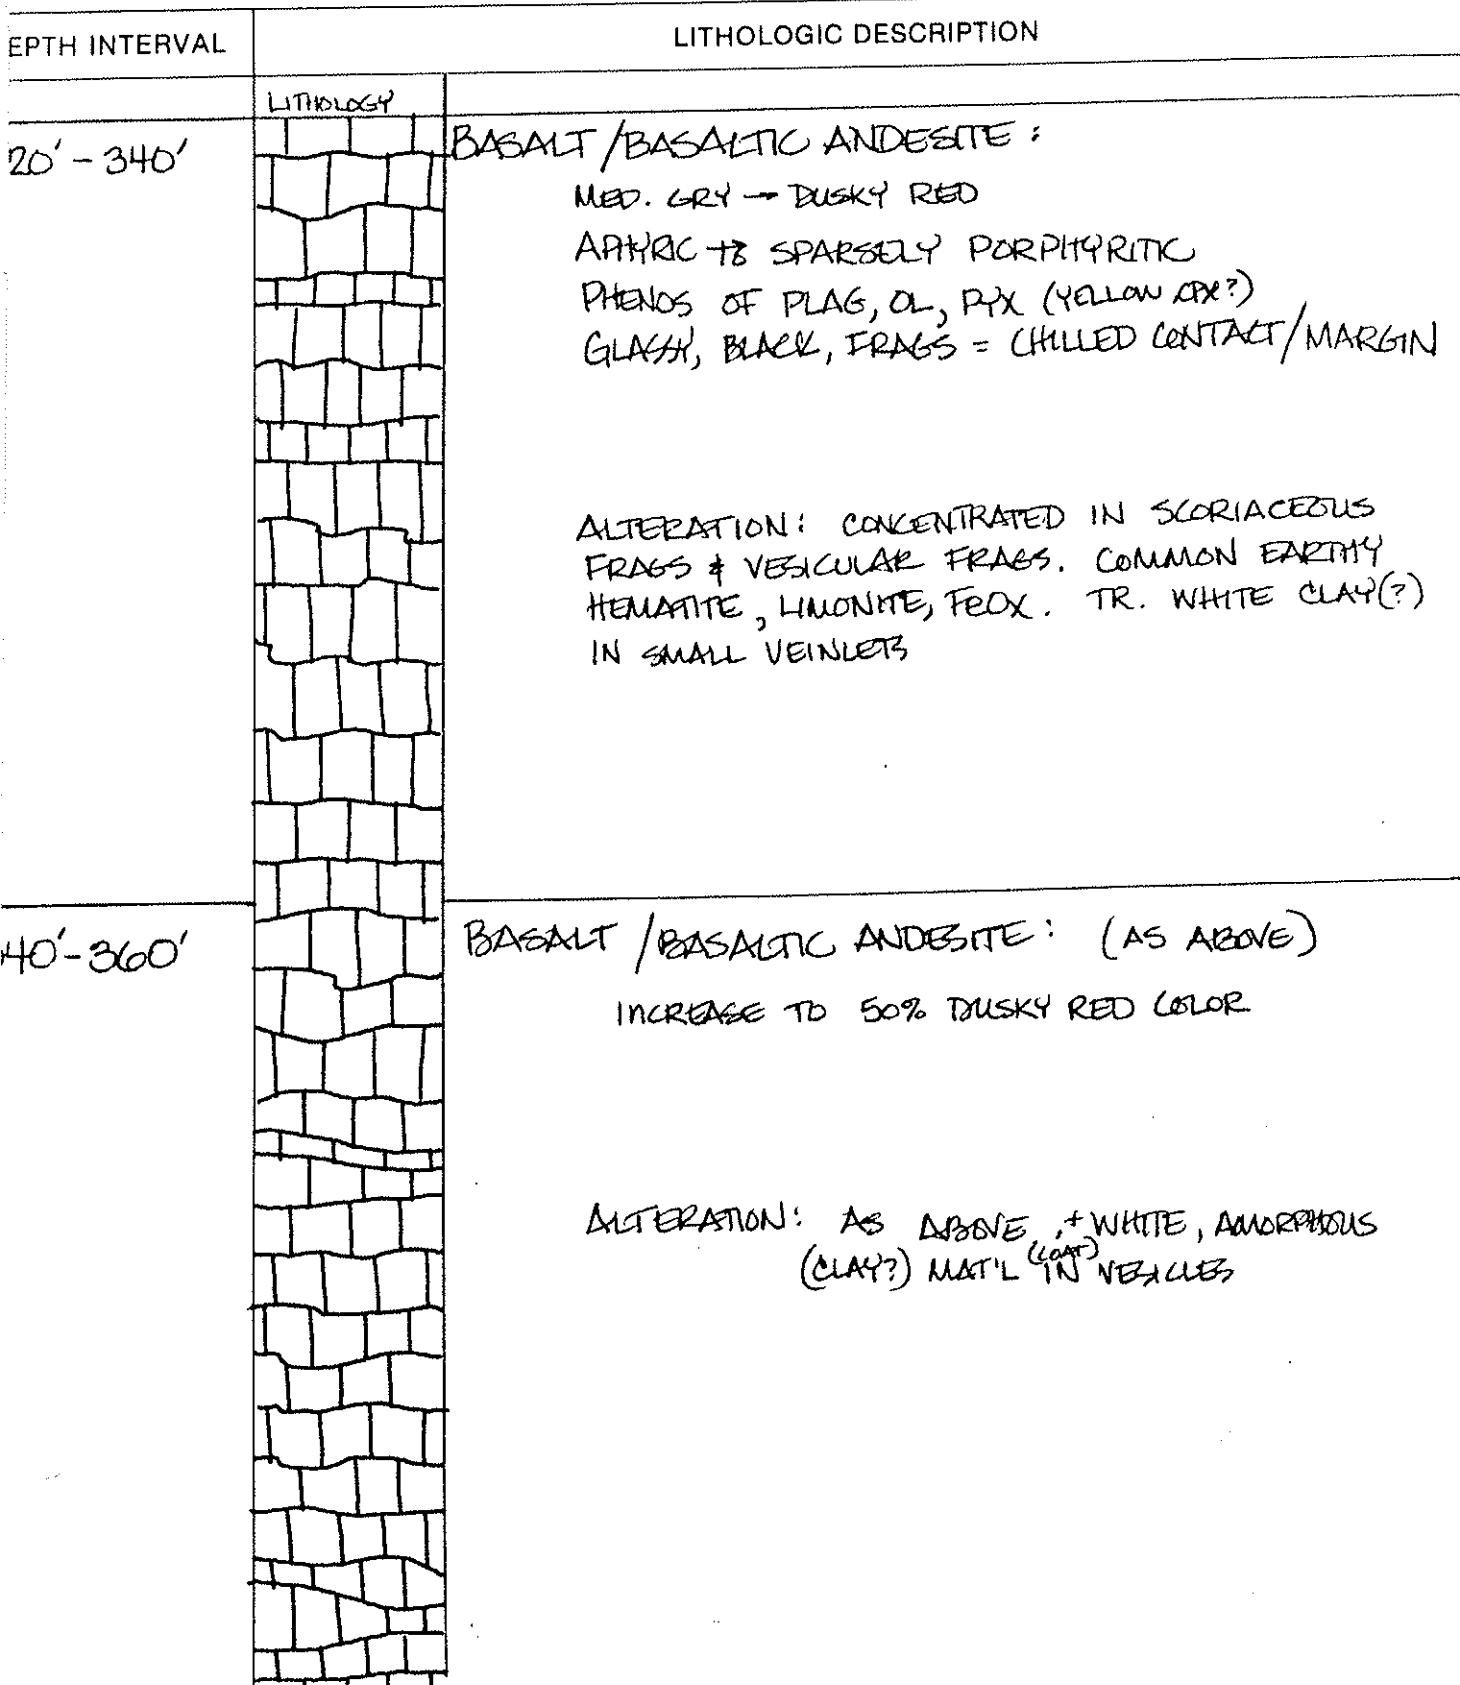 EPTH INTERVAL
LITHOLOGIC DESCRIPTION
LITHOLOGY
20' - 340'
BASALT / BASALTIC ANDESITE :
MED. GRY → DUSKY RED
APHYRIC TO SPARSELY PORPHYRITIC
PHENOS OF PLAG, OL, PYX (YELLOW CPX?)
GLASSY, BLACK, FRAGS = CHILLED CONTACT/MARGIN
ALTERATION: CONCENTRATED IN SCORIACEOUS
FRAGS & VESICULAR FRAGS. COMMON EARTHY
HEMATITE, LIMONITE, FEOX. TR. WHITE CLAY(?)
IN SMALL VEINLETS
40'-360'
BASALT / BASALTIC ANDESITE: (AS ABOVE)
INCREASE TO 50% DUSKY RED COLOR
ALTERATION: AS ABOVE, + WHITE, AMORPHOUS
(CLAY?) MAT'L (COAT) IN VESICLES